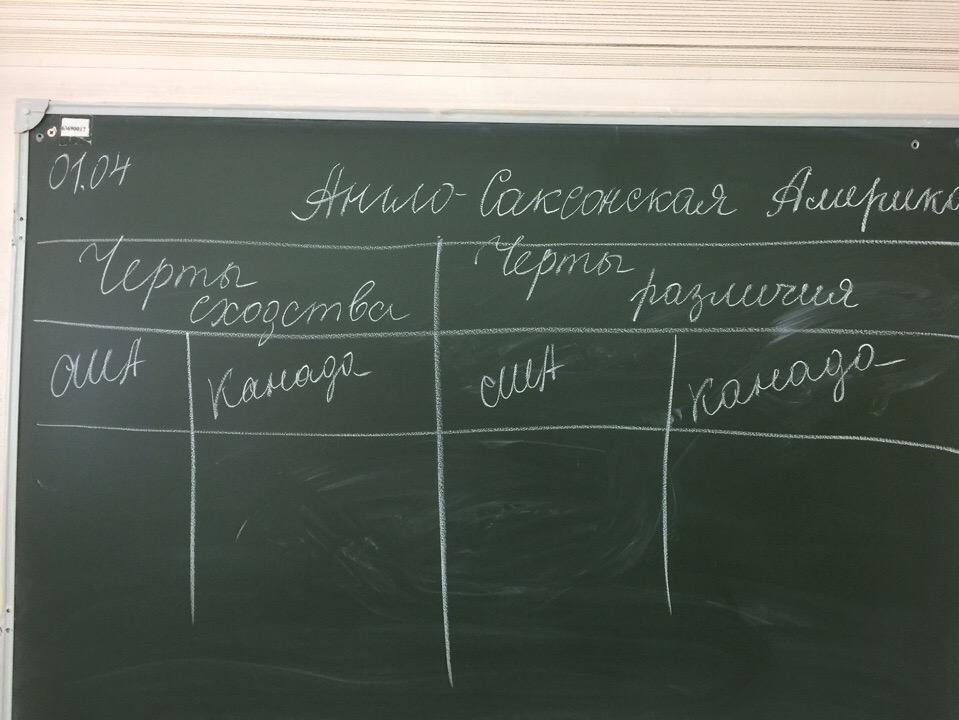 01.04
Англо-Саксонская Америка
Черты
сходства
Черты
различия
США
Канада
США
Канада